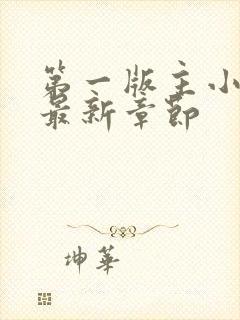 第一版主小
最新章节
坤华